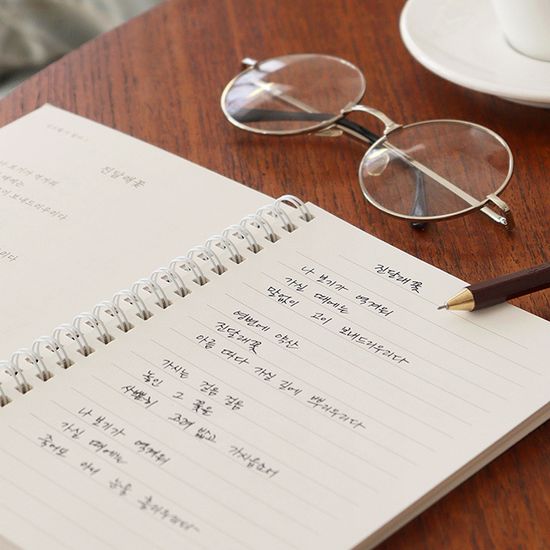 진달래꽃
나 보기가 역겨워
때에는
보내드리우리다
진달래꽃
나 보기가 역겨워
가실 때에는
말없이 고이 보내드리우리다
영변에 약산
진달래꽃
아름 따다 가실 길에 뿌리우리다
가시는 걸음 걸음
놓인 그 꽃을
사뿐히 즈려 밟고 가시옵소서
나 보기가 역겨워
가실 때에는
죽어도 아니 눈물 흘리우리다